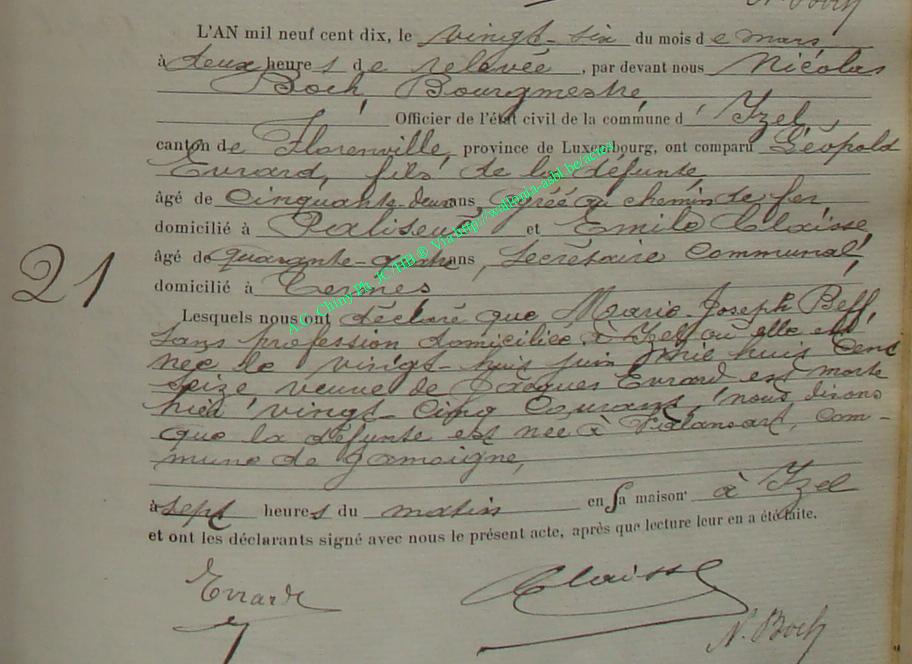 N. Boch
L'AN mil neuf cent dix, le vingt-six du mois de mars
à deux heures de relevée, par devant nous Nicolas
Boch, Bourgmestre
Officier de l'état civil de la commune d'Izel,
canton de Florenville, province de Luxembourg, ont comparu Léopold
Evrard, fils de la défunte,
âgé de cinquante-deux ans, agréé au chemin de fer
domicilié à Paliseul et Emile Claisse
âgé de quarante- ans, Secrétaire communal,
domicilié à Termes
21
Lesquels nous ont déclaré que Marie-Joseph Beff,
sans profession domiciliée à Izel où elle est
née le vingt-huit juin mil huit cent
seize veuve de Jacques Evrard est morte
hier vingt-cinq courant, nous disons
que la défunte est née à Valansart, com-
mune de Jamoigne,
à sept heures du matin en sa maison à Izel
et ont les déclarants signé avec nous le présent acte, après que lecture leur en a été faite.
Evrard
Claisse
N. Boch
A.C. Chiny Ph. JC HB ® Via http://wallonia-asbl.be/actes/